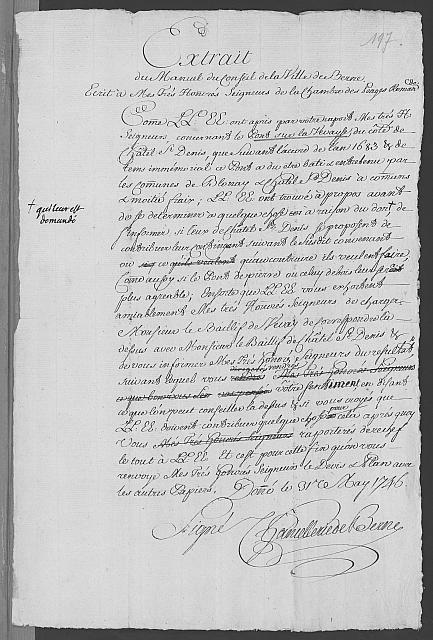 197.
Extrait
du Manuel du Conseil de la Ville de Berne,
Ecrit à Mes Trés Honorés Seigneurs de la Chambre des Péages Roman
Come LL.EE. ont apris par votre raport Mes trés H.
Seigneurs concernant le Pont sur la Vevayse, du côté de
Châtel St. Denis, que suivant lacord de lan 1683 & de
tems immémorial ce Pont a du etre bati & entretenu par
les comunes de Blonay & Châtel St. Denis à comuns
& moitié fraix; LL.EE. ont trouvé à propos avant
de se déterminer à quelque chose en a raison du dont, de
s'informer si ceux de Châtel St. Denis se proposent de
contribuer leur contingent suivant le susdit convenant
ou quaucontraire ils veulent faire,
+ qui leur est
demandé
Come aussy si le Pont de pierre ou celuy de bois leur
plus agreable; Ensorte que LL.EE. vous exhortent
amiablement Mes trés Honorés Seigneurs de charger
Monsieur le Baillif de Vevay de correspondre la
dessus avec Monsieur le Baillif de Châtel St. Denis &
de vous informer Mes Trés Honorés Seigneurs du resultat,
suivant lequel vous Mes Trés Honorés Seigneurs
votre sentiment en disant
ce que l'on peut conseiller la dessus & si vous croyés que
LL.EE. doivent contribuer quelque chose pour cela; après quoy
Vous Mes Trés Honorés Seigneurs raporterés derechef
le tout à LL.EE. Et c'est pour cette fin quon vous
renvoye Mes Trés Honorés Seigneurs le Devis & Plan avec
les autres Papiers. Doné le 31e May 1746.
Signé Chancellerie de Berne